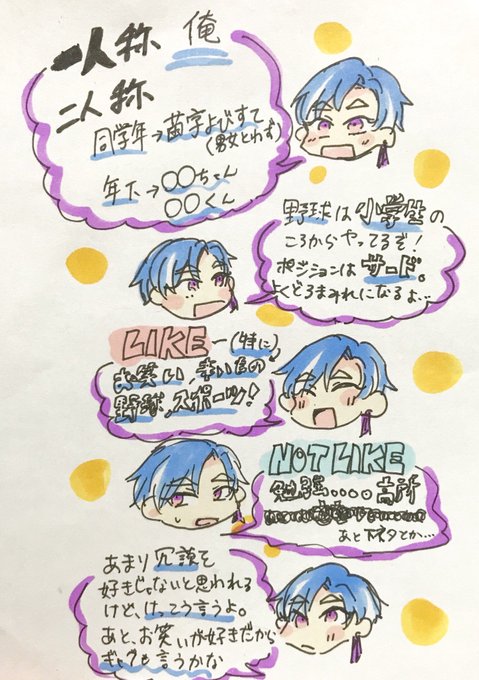 一人称 俺
二人称
同学年→苗字よびすて
(男女とわず)
年下→○○ちゃん
○○くん
野球は小学生の
ころからやってるぞ!
ポジションはサード。
よくどろまみれになるよ…
LIKE(特に)
お笑い,
野球,スポーツ!
NOT LIKE
勉強....高所
あと下ネタとか…
あまり冗談を
好きじゃないと思われる
けど、けっこう言うよ。
あと、お笑いが好きだから
ギャグも言うかな